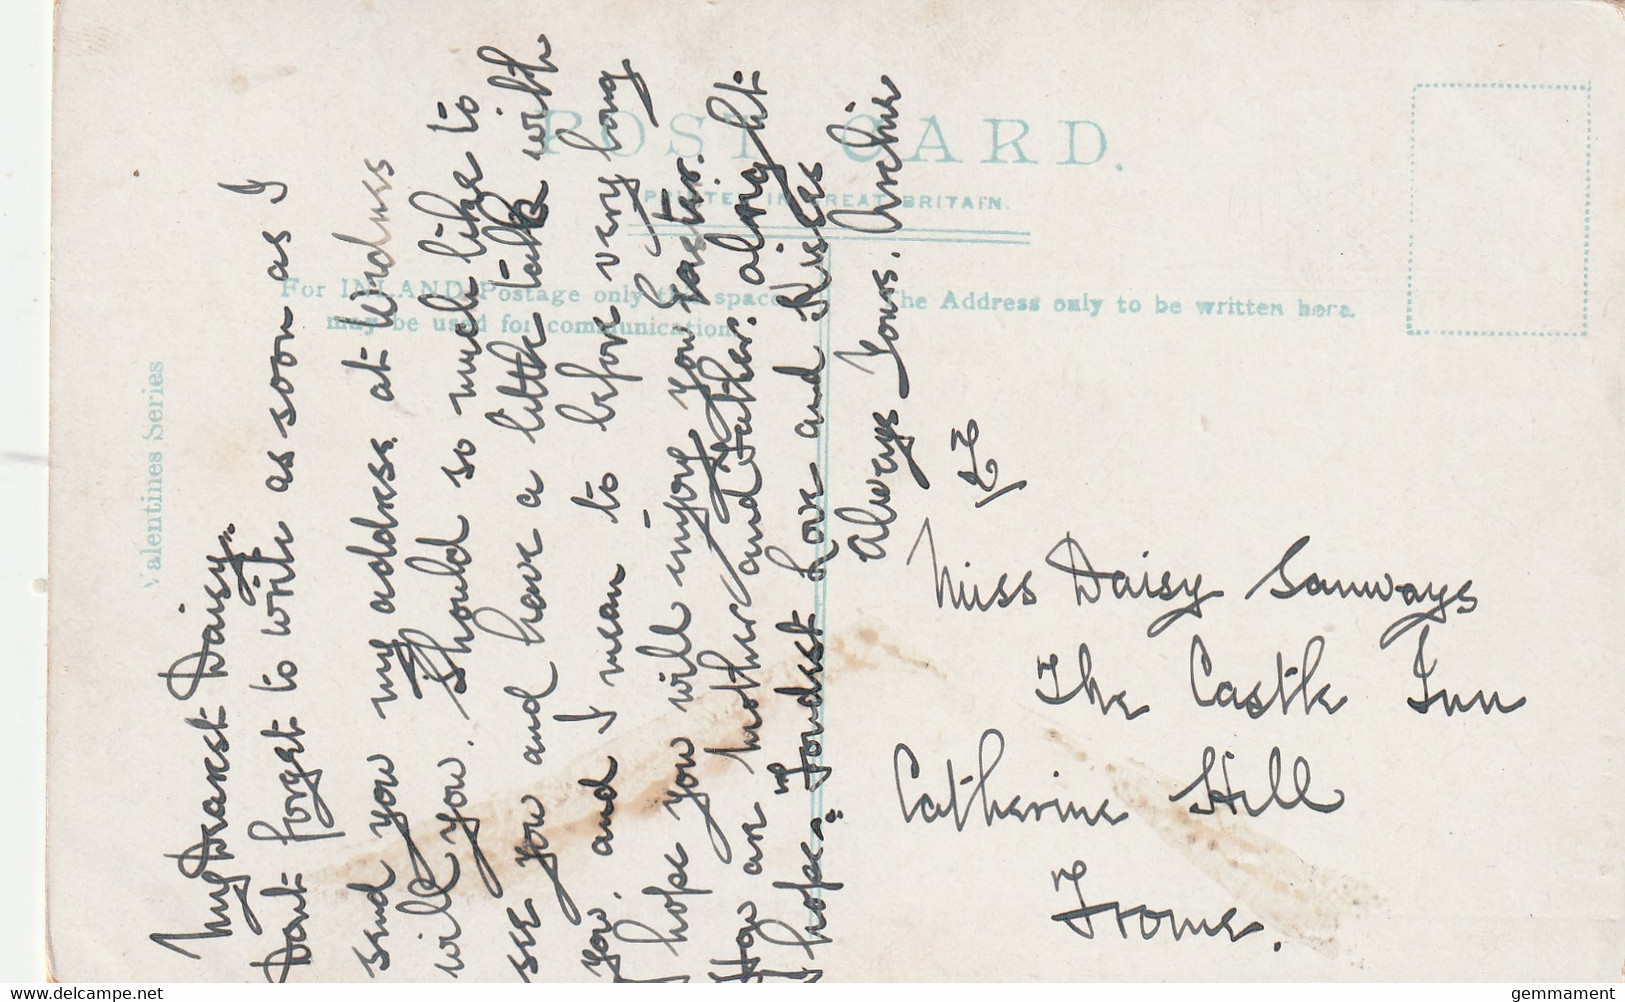 POST CARD.
PRINTED IN GREAT BRITAIN.
Valentines Series
For INLAND Postage only this space
may be used for communication
The Address only to be written here.
My Dearest Daisy.
Dont forget to write as soon as I
send you my address. at Widness
will you. Should so much like to
see you and have a little talk with
you. and I mean to before very long.
I hope you will enjoy your Easter.
How are Mother and Father. alright
I hope. Fondest Love and Kisses
Always Yours. Archie
Miss Daisy Samways
The Castle Inn
Catherine Hill
Frome.
delcampe.net
gemmament